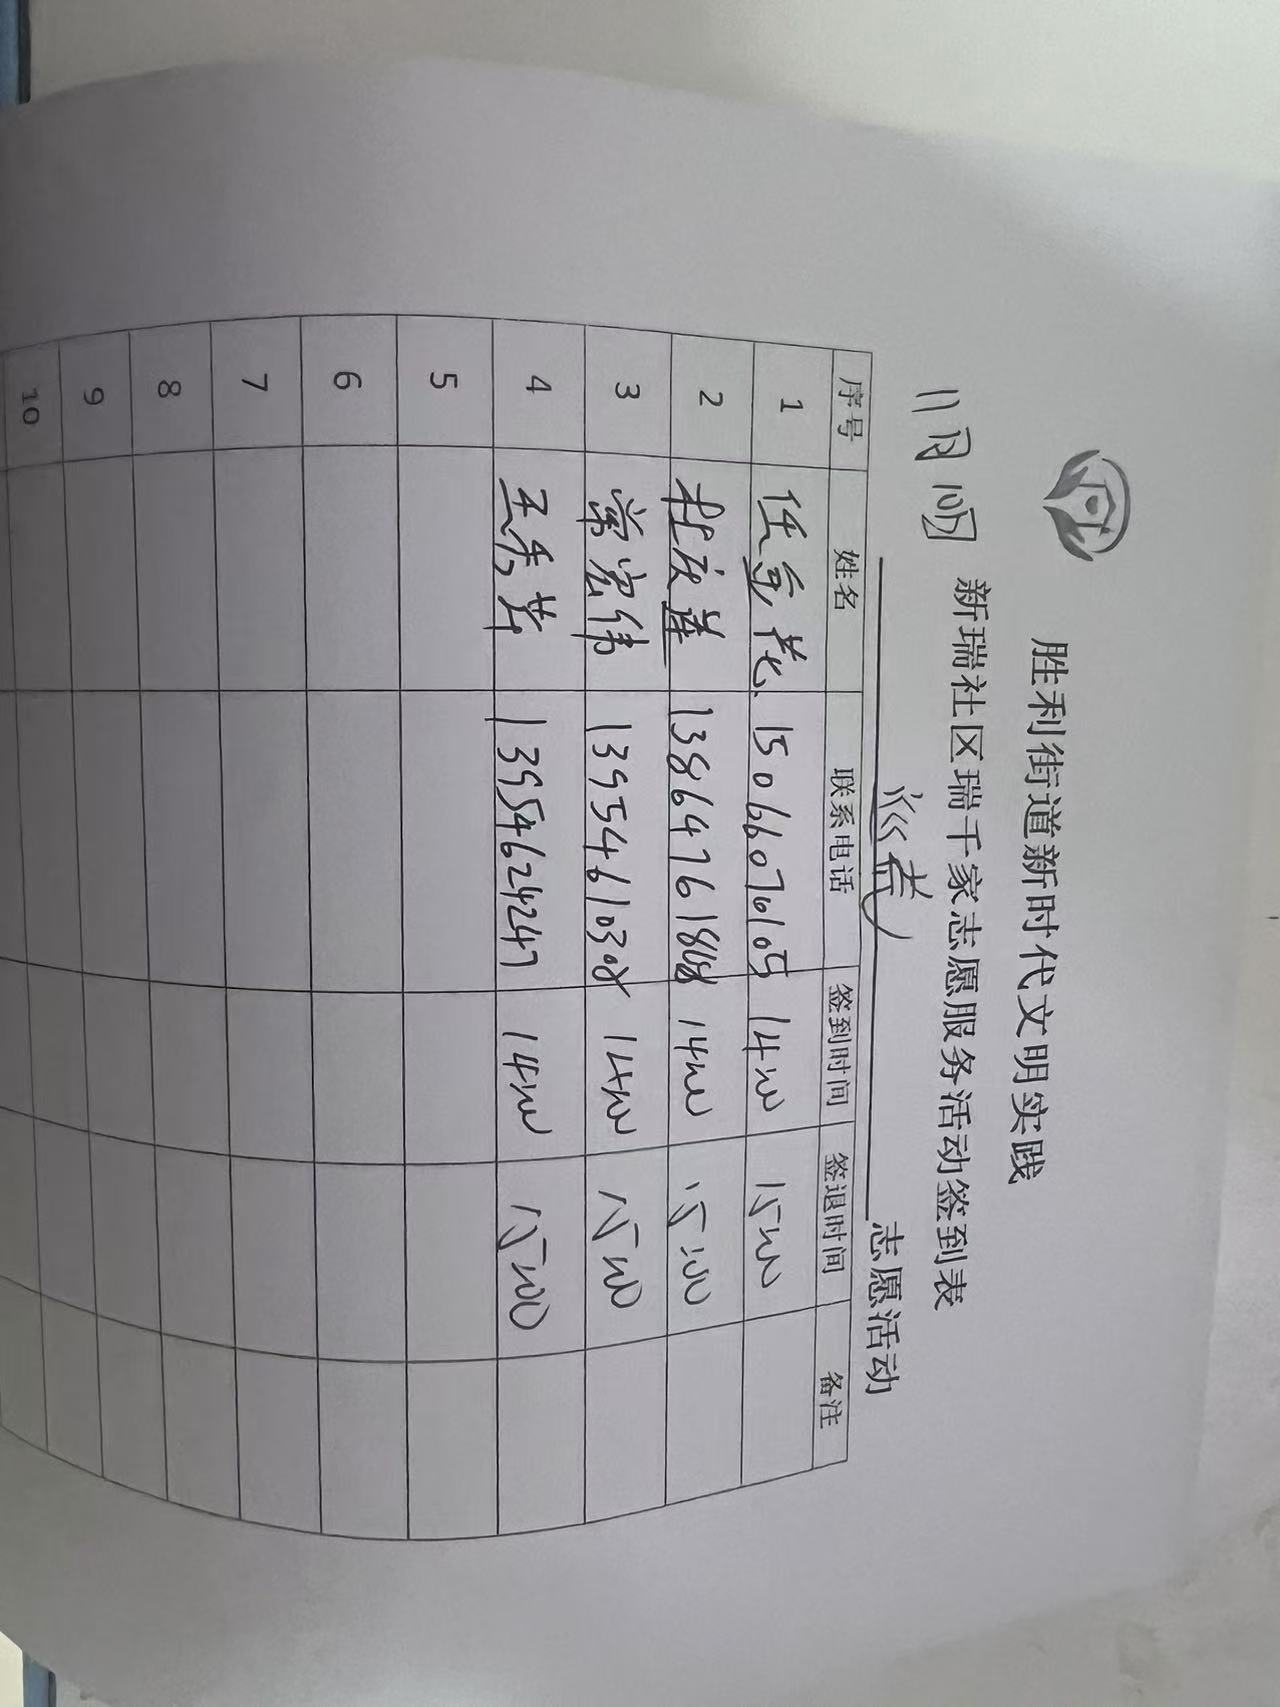 胜利街道新时代文明实践
新瑞社区瑞千家志愿服务活动签到表
11月10日 志愿活动
序号 姓名 联系电话 签到时间 签退时间 备注
1 15066070105 14:00 15:00
2 杜庆莲 13864761808 14:00 15:00
3 常宏伟 13954610308 14:00 15:00
4 王秀芹 13954624247 14:00 15:00
5
6
7
8
9
10